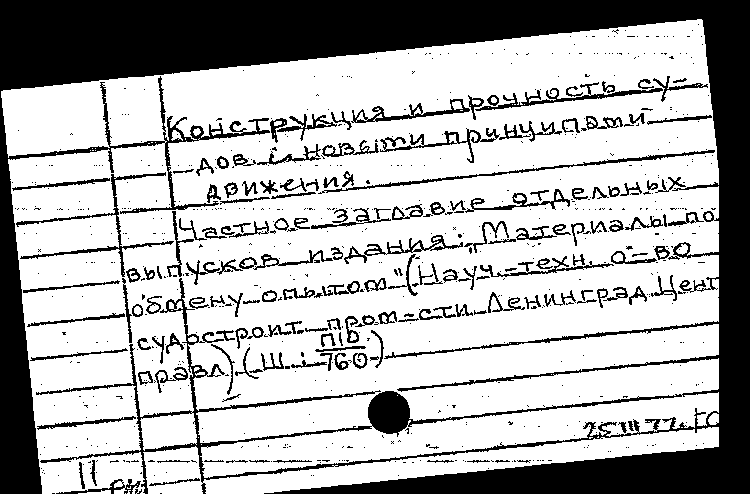 Конструкция и прочность су-
дов с новыми принципами
движения.
Частное заглавие отдельных
выпусков издания: „Материалы по
обмену опытом" (Науч.-техн. о-во
судостроит. пром-сти Ленинград. Цент
правл) (Ш : ПІД/760)
25 III 77. ГС
11
рт